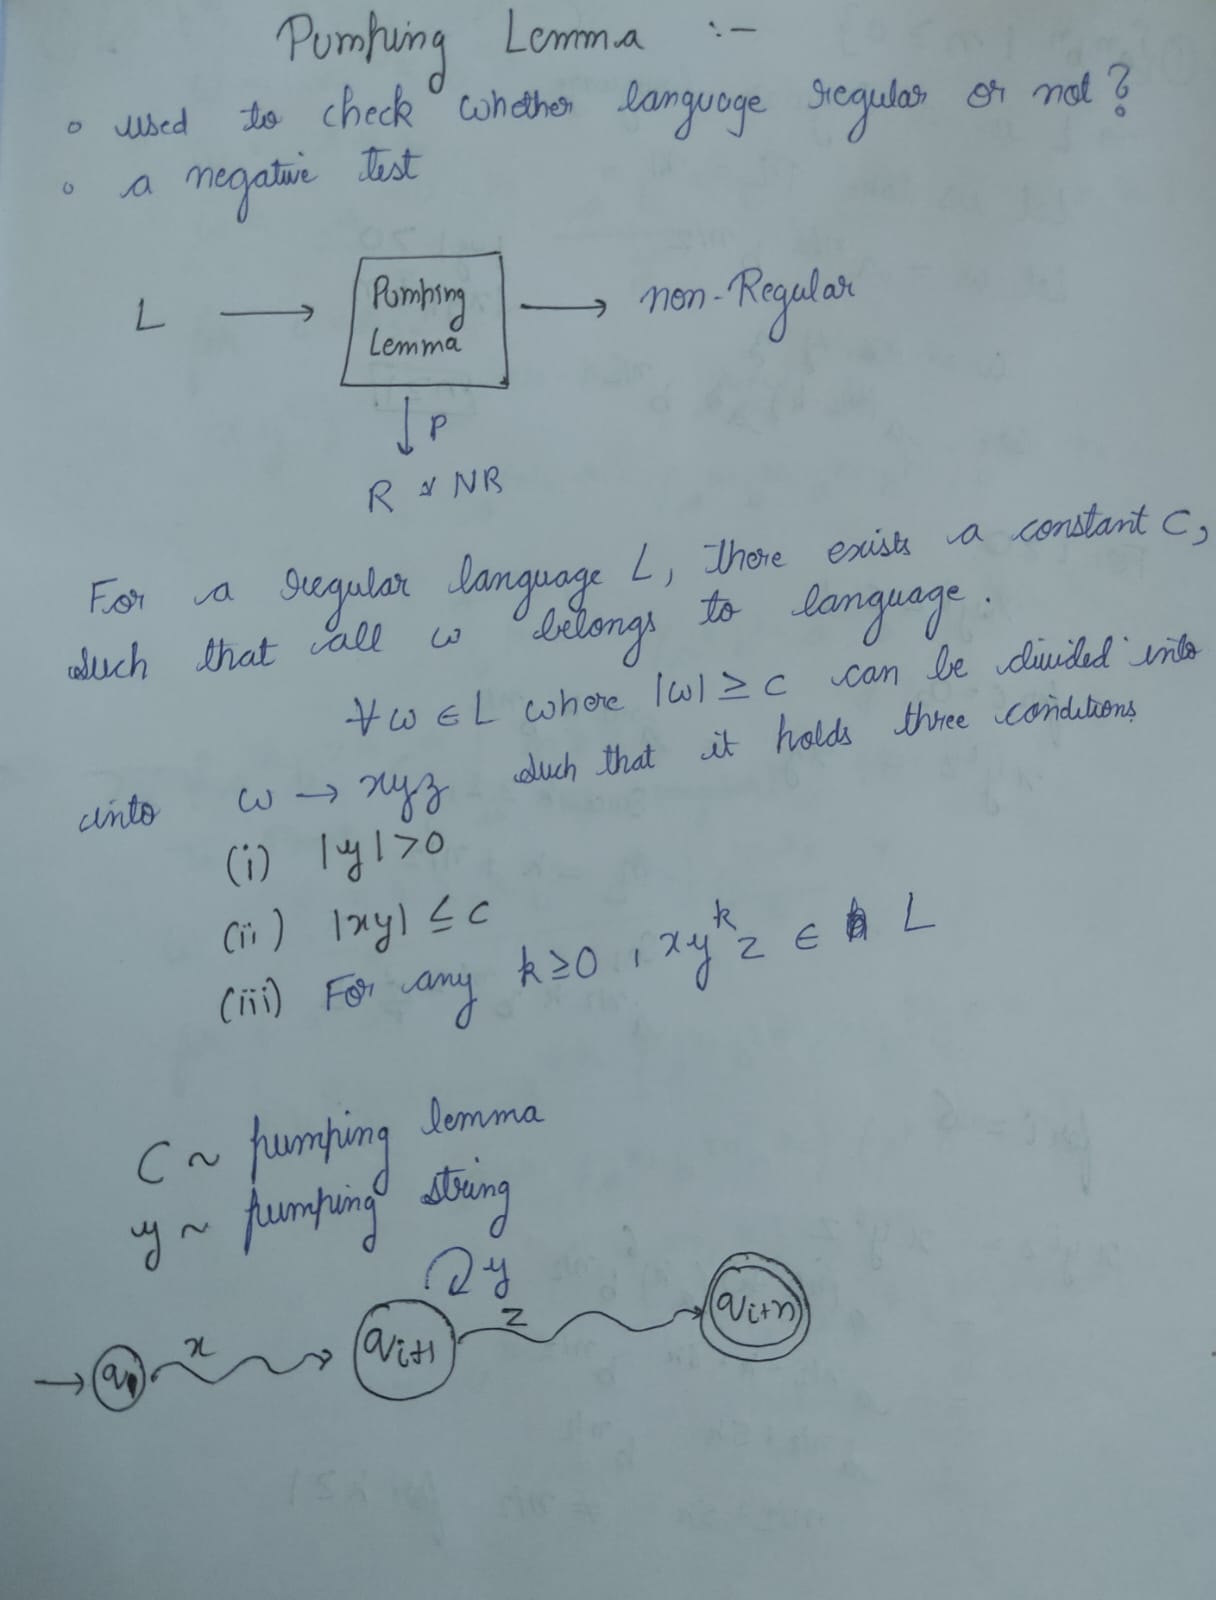 Pumping Lemma :-
◦ used to check whether language regular or not?
◦ a negative test
L → Pumping Lemma → non-Regular
↓ P
R NR
For a regular language L, there exists a constant C,
such that all ω belongs to language.
∀ ω ∈ L where |ω| ≥ C can be divided into
into ω → xyz such that it holds three conditions
(i) |y| > 0
(ii) |xy| ≤ C
(iii) For any k ≥ 0, xy^k z ∈ L
C ~ pumping lemma
y ~ pumping string
y
x z
q q_{i+1} q_{i+n}